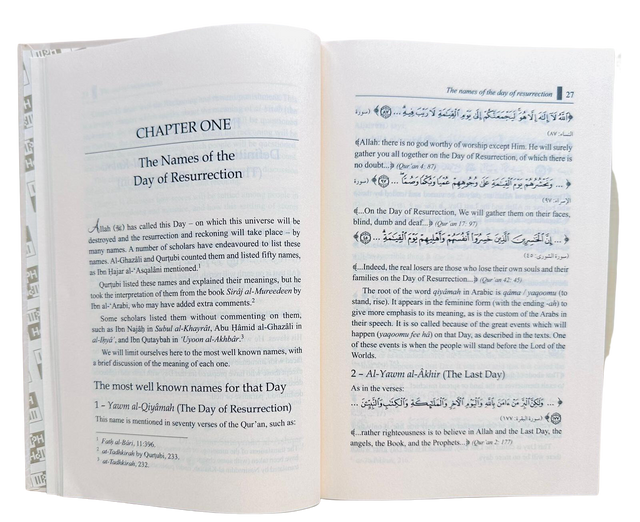 CHAPTER ONE
The Names of the
Day of Resurrection
Allah (ﷻ) has called this Day – on which this universe will be
destroyed and the resurrection and reckoning will take place – by
many names. A number of scholars have endeavoured to list these
names. Al-Ghazâli and Qurṭubi counted them and listed fifty names,
as Ibn Hajar al-‘Asqalâni mentioned.1
Qurṭubi listed these names and explained their meanings, but he
took the interpretation of them from the book Sirâj al-Mureedeen by
Ibn al-‘Arabi, who may have added extra comments.2
Some scholars listed them without commenting on them,
such as Ibn Najâḥ in Subul al-Khayrât, Abu Ḥâmid al-Ghazâli in
al-Iḥyâ’, and Ibn Qutaybah in ‘Uyoon al-Akhbâr.3
We will limit ourselves here to the most well known names, with
a brief discussion of the meaning of each one.
The most well known names for that Day
1 – Yawm al-Qiyâmah (The Day of Resurrection)
This name is mentioned in seventy verses of the Qur’an, such as:
1 Fatḥ al-Bâri, 11:396.
2 at-Tadhkirah by Qurṭubi, 233.
3 at-Tadhkirah, 232.
The names of the day of resurrection 27
﴿ٱللَّهُ لَآ إِلَٰهَ إِلَّا هُوَ لَيَجْمَعَنَّكُمْ إِلَىٰ يَوْمِ ٱلْقِيَٰمَةِ لَا رَيْبَ فِيهِ ... ﴾ (سورة
النساء: ٨٧)
﴾Allah: there is no god worthy of worship except Him. He will surely
gather you all together on the Day of Resurrection, of which there is
no doubt...﴿ (Qur’an 4: 87)
﴿... وَنَحْشُرُهُمْ يَوْمَ ٱلْقِيَٰمَةِ عَلَىٰ وُجُوهِهِمْ عُمْيًا وَبُكْمًا وَصُمًّا ... ﴾ (سورة
الإسراء: ٩٧)
﴾...On the Day of Resurrection, We will gather them on their faces,
blind, dumb and deaf...﴿ (Qur’an 17: 97)
﴿... إِنَّ ٱلْخَٰسِرِينَ ٱلَّذِينَ خَسِرُوٓا۟ أَنفُسَهُمْ وَأَهْلِيهِمْ يَوْمَ ٱلْقِيَٰمَةِ ... ﴾
(سورة الشورى: ٤٥)
﴾...Indeed, the real losers are those who lose their own souls and their
families on the Day of Resurrection...﴿ (Qur’an 42: 45)
The root of the word qiyâmah in Arabic is qâma / yaqoomu (to
stand, rise). It appears in the feminine form (with the ending -ah) to
give more emphasis to its meaning, as is the custom of the Arabs in
their speech. It is so called because of the great events which will
happen (yaqoomu fee hâ) on that Day, as described in the texts. One
of these events is when the people will stand before the Lord of the
Worlds.
2 – Al-Yawm al-Âkhir (The Last Day)
As in the verses:
﴿... وَلَٰكِنَّ ٱلْبِرَّ مَنْ ءَامَنَ بِٱللَّهِ وَٱلْيَوْمِ ٱلْءَاخِرِ وَٱلْمَلَٰٓئِكَةِ وَٱلْكِتَٰبِ وَٱلنَّبِيِّـۧنَ ...
﴾ (سورة البقرة: ١٧٧)
﴾...rather righteousness is to believe in Allah and the Last Day, the
angels, the Book, and the Prophets...﴿ (Qur’an 2: 177)